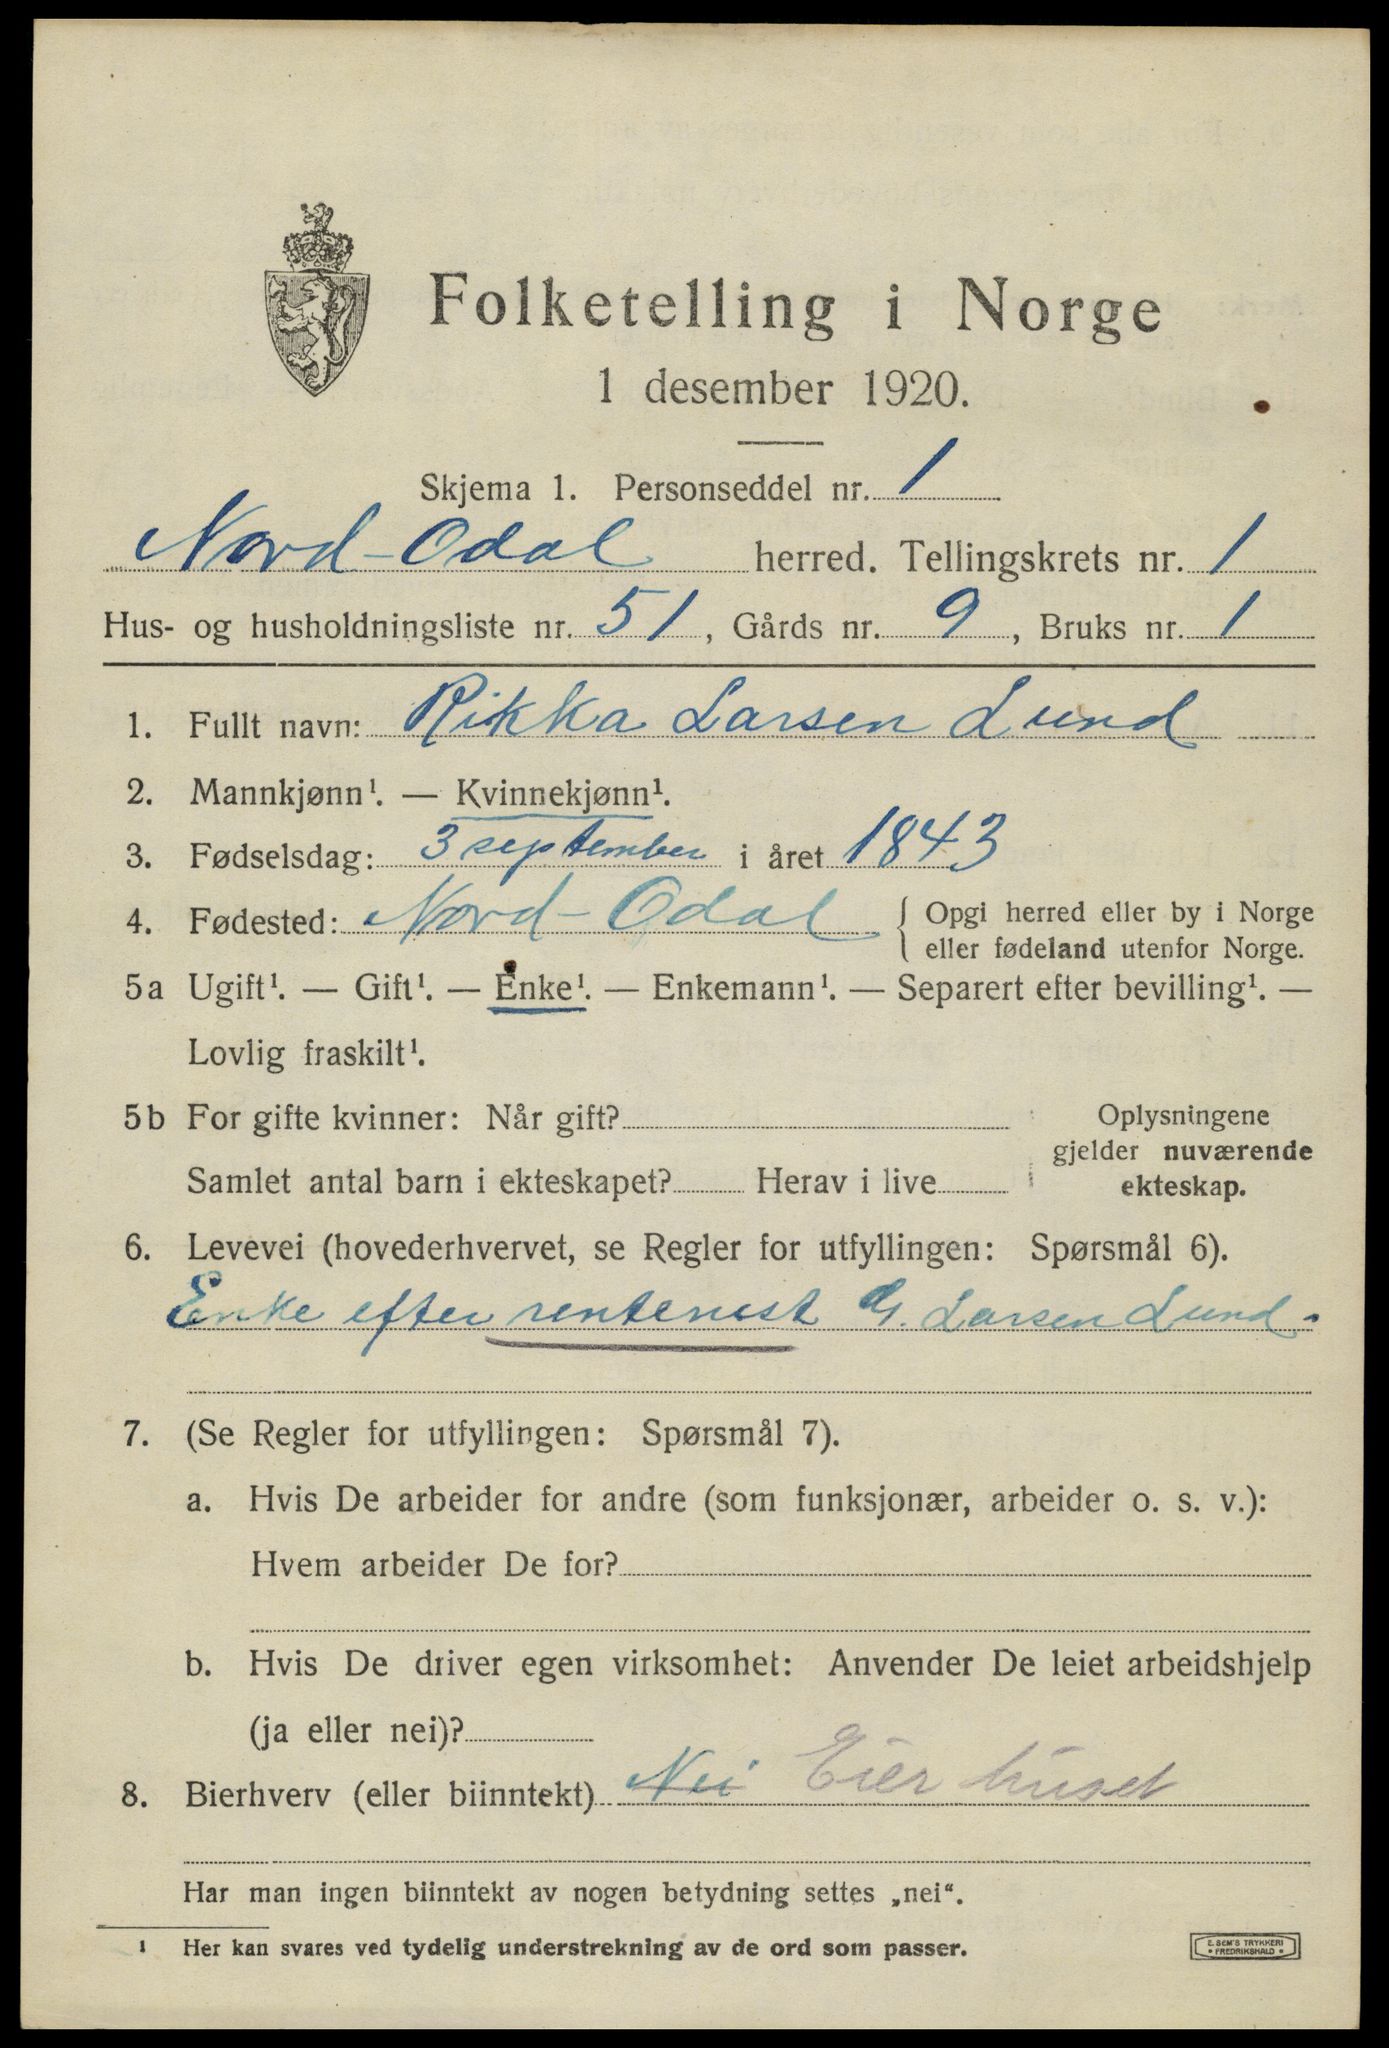 Folketelling i Norge
1 desember 1920.
Skjema 1. Personseddel nr. 1
Nord-Odal herred. Tellingskrets nr. 1
Hus- og husholdningsliste nr. 51, Gårds nr. 9, Bruks nr. 1
1. Fullt navn: Rikka Larsen Lund
2. Mannkjønn¹. — Kvinnekjønn¹.
3. Fødselsdag: 3 september i året 1843
4. Fødested: Nord-Odal { Opgi herred eller by i Norge
eller fødeland utenfor Norge.
5a Ugift¹. — Gift¹. — Enke¹. — Enkemann¹. — Separert efter bevilling¹. —
Lovlig fraskilt¹.
5b For gifte kvinner: Når gift?
Samlet antal barn i ekteskapet? Herav i live
Oplysningene
gjelder nuværende
ekteskap.
6. Levevei (hovederhvervet, se Regler for utfyllingen: Spørsmål 6).
Enke efter rentenist G. Larsen Lund.
7. (Se Regler for utfyllingen: Spørsmål 7).
a. Hvis De arbeider for andre (som funksjonær, arbeider o. s. v.):
Hvem arbeider De for?
b. Hvis De driver egen virksomhet: Anvender De leiet arbeidshjelp
(ja eller nei)?
8. Bierhverv (eller biinntekt) Nei Eier huset
Har man ingen biinntekt av nogen betydning settes „nei“.
¹ Her kan svares ved tydelig understrekning av de ord som passer.
E. SEM'S TRYKKERI
• FREDRIKSHALD •